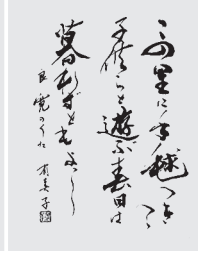 この里に手毬つきつゝ
子供らと遊ぶ春日は
暮れずともよし
良寛のうた